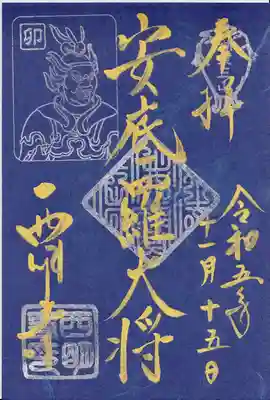 奉拝
令和五年
十一月十五日
安底羅大将
西明寺
卯